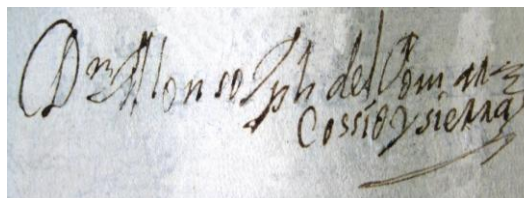 Dn Alonso Jph del Coman
Cossio y sierra